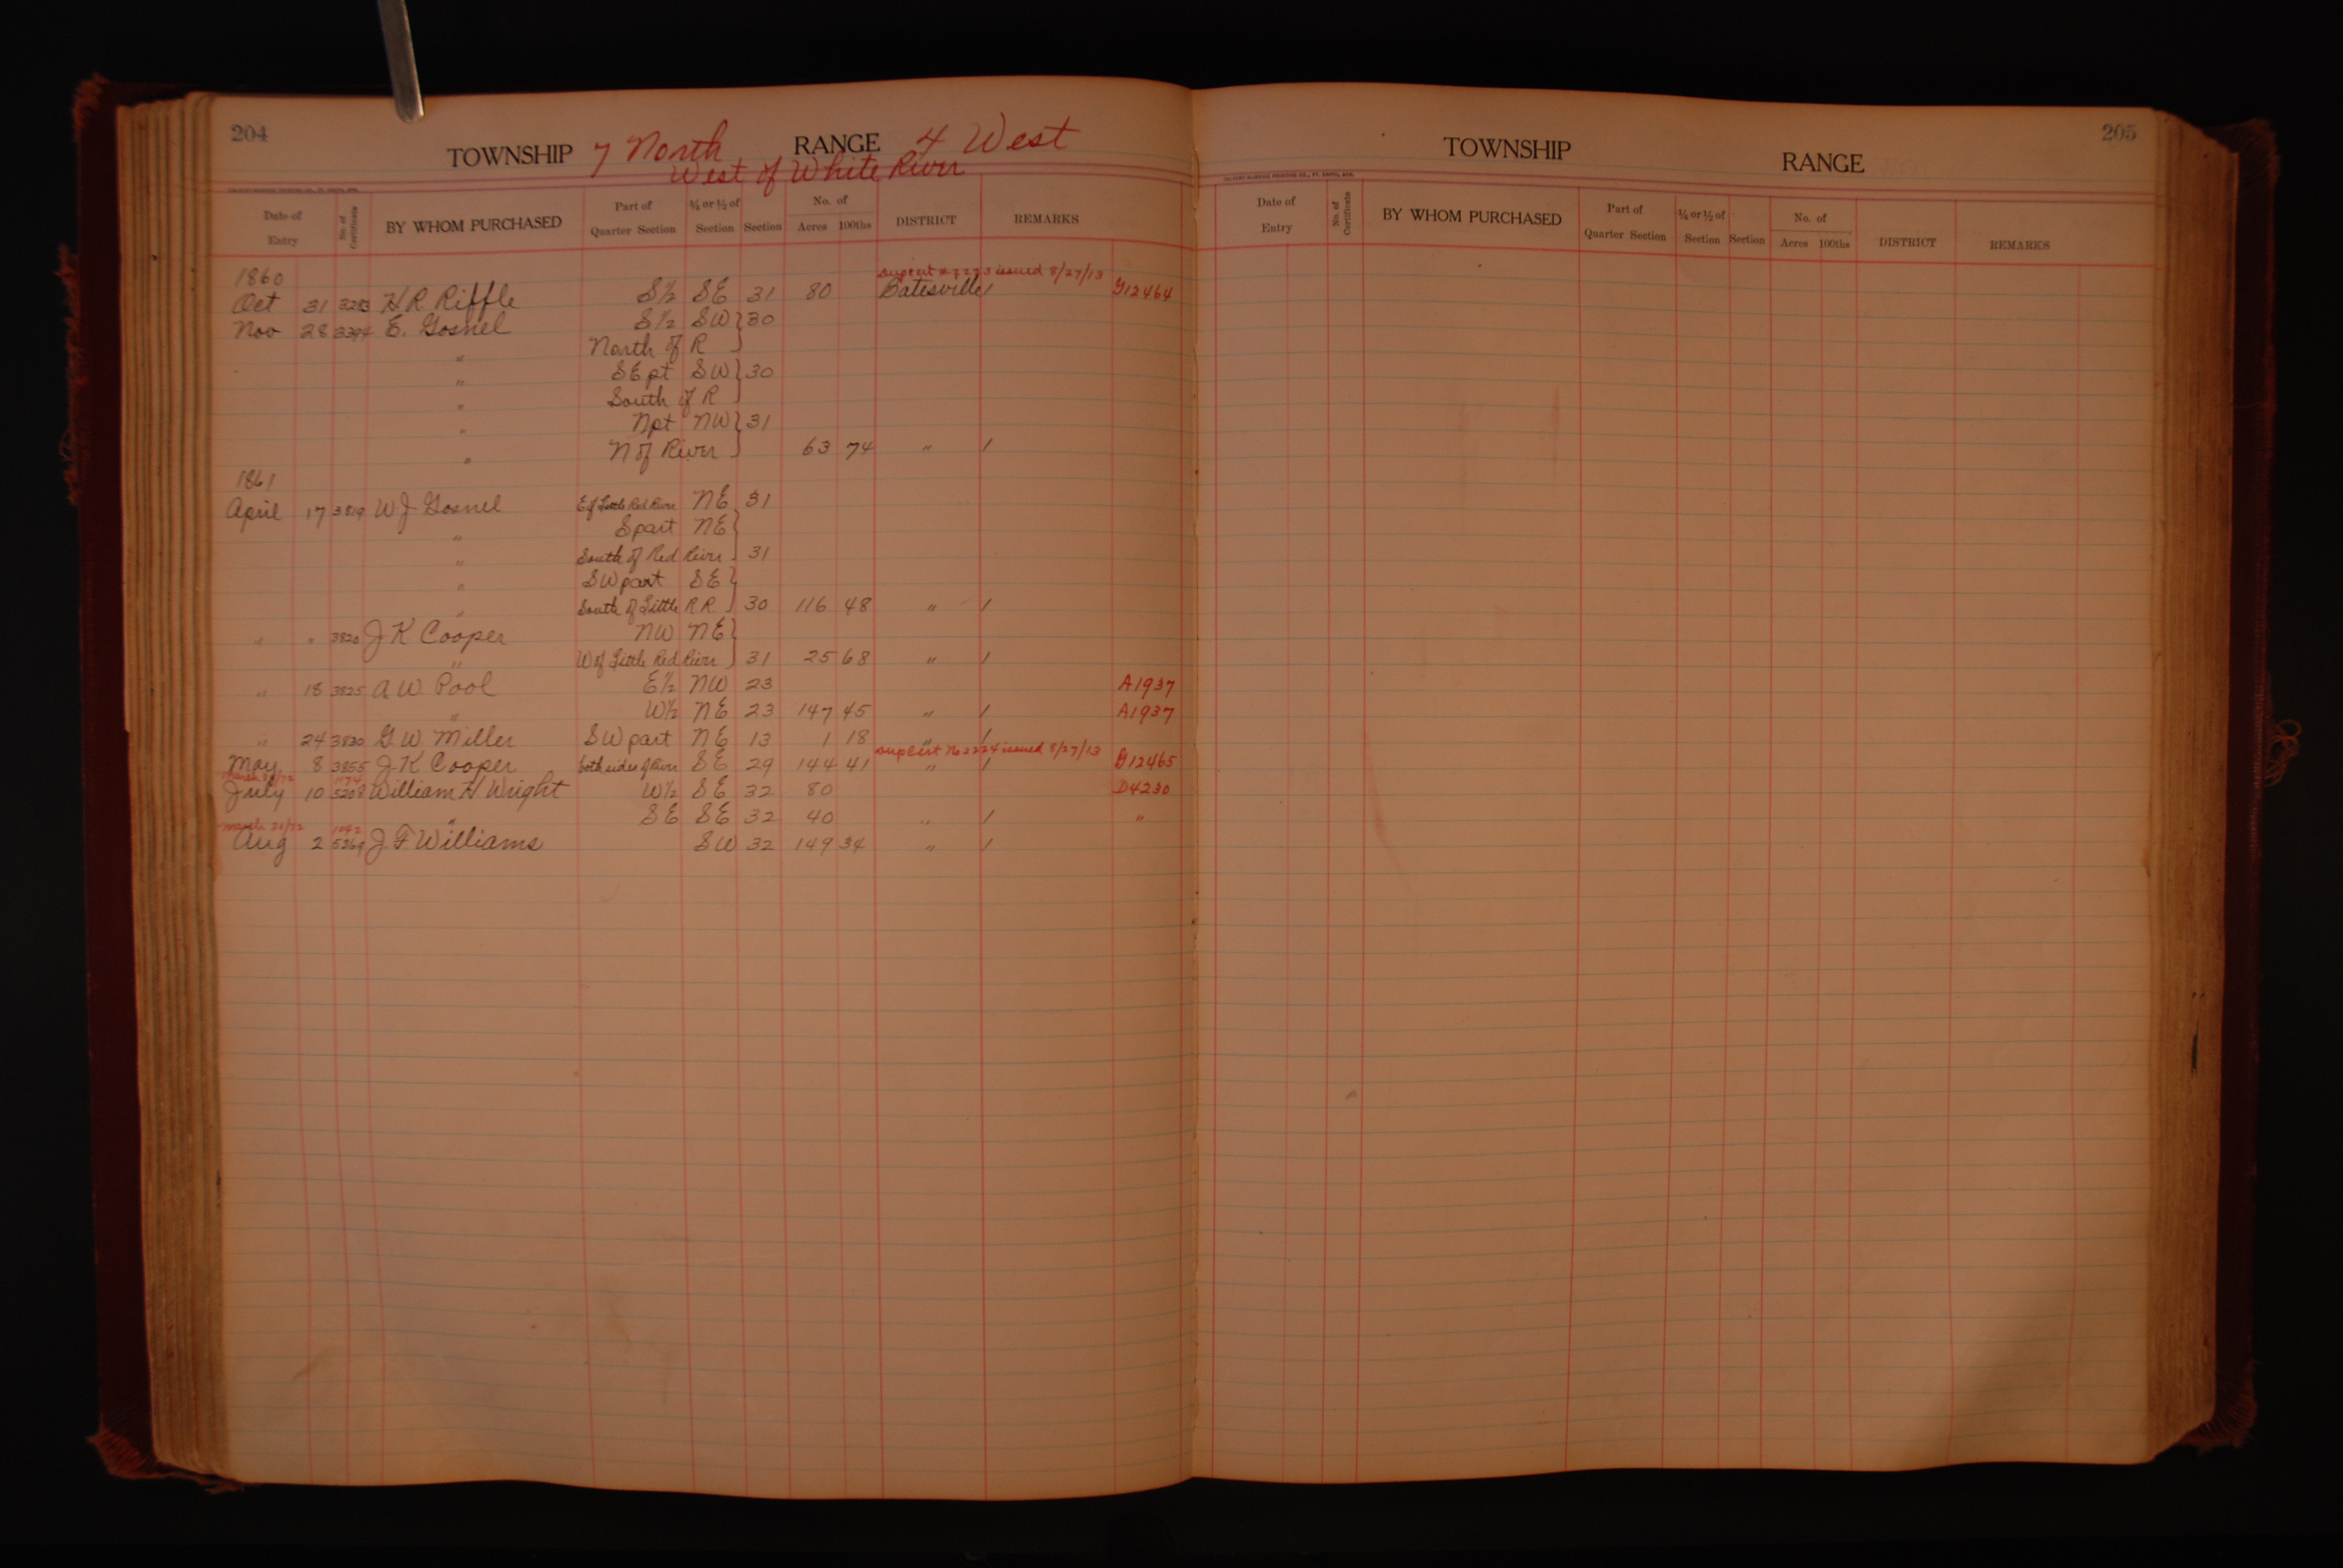 204
TOWNSHIP 7 North RANGE 4 West
West of White River
Date of Entry No. of Certificate BY WHOM PURCHASED Part of Quarter Section ¼ or ½ of Section Section No. of Acres 100ths DISTRICT REMARKS
1860 issued 8/27/13
Oct 31 3283 H R Riffle S½ SE 31 80 Batesville / G12464
Nov 28 E. Gosnel S½ SW } 30
" North of R
" SE pt SW } 30
" South of R
" N pt NW } 31
" N of River 63 74 " /
1861
April 17 3819 W J Gosnel E of Little Red River NE 31
" S part NE }
" South of Red River 31
" SW part SE }
" South of Little R R. 30 116 48 " /
" " 3820 J K Cooper NW NE }
" W of Little Red River 31 25 68 " /
" 18 3825 A W Pool E½ NW 23 A1937
" W½ NE 23 147 45 " / A1937
" 24 3830 G W Miller SW part NE 13 1 18 " /
issued 8/27/13
May 8 3855 J. K Cooper both sides of River SE 29 144 41 " / G12465
1174
July 10 5208 William H Wright W½ SE 32 80 D4230
" SE SE 32 40 " / "
March 20/72 1042
Aug 2 5369 J F Williams SW 32 149 34 " /
205
TOWNSHIP RANGE
Date of Entry No. of Certificate BY WHOM PURCHASED Part of Quarter Section ¼ or ½ of Section Section No. of Acres 100ths DISTRICT REMARKS